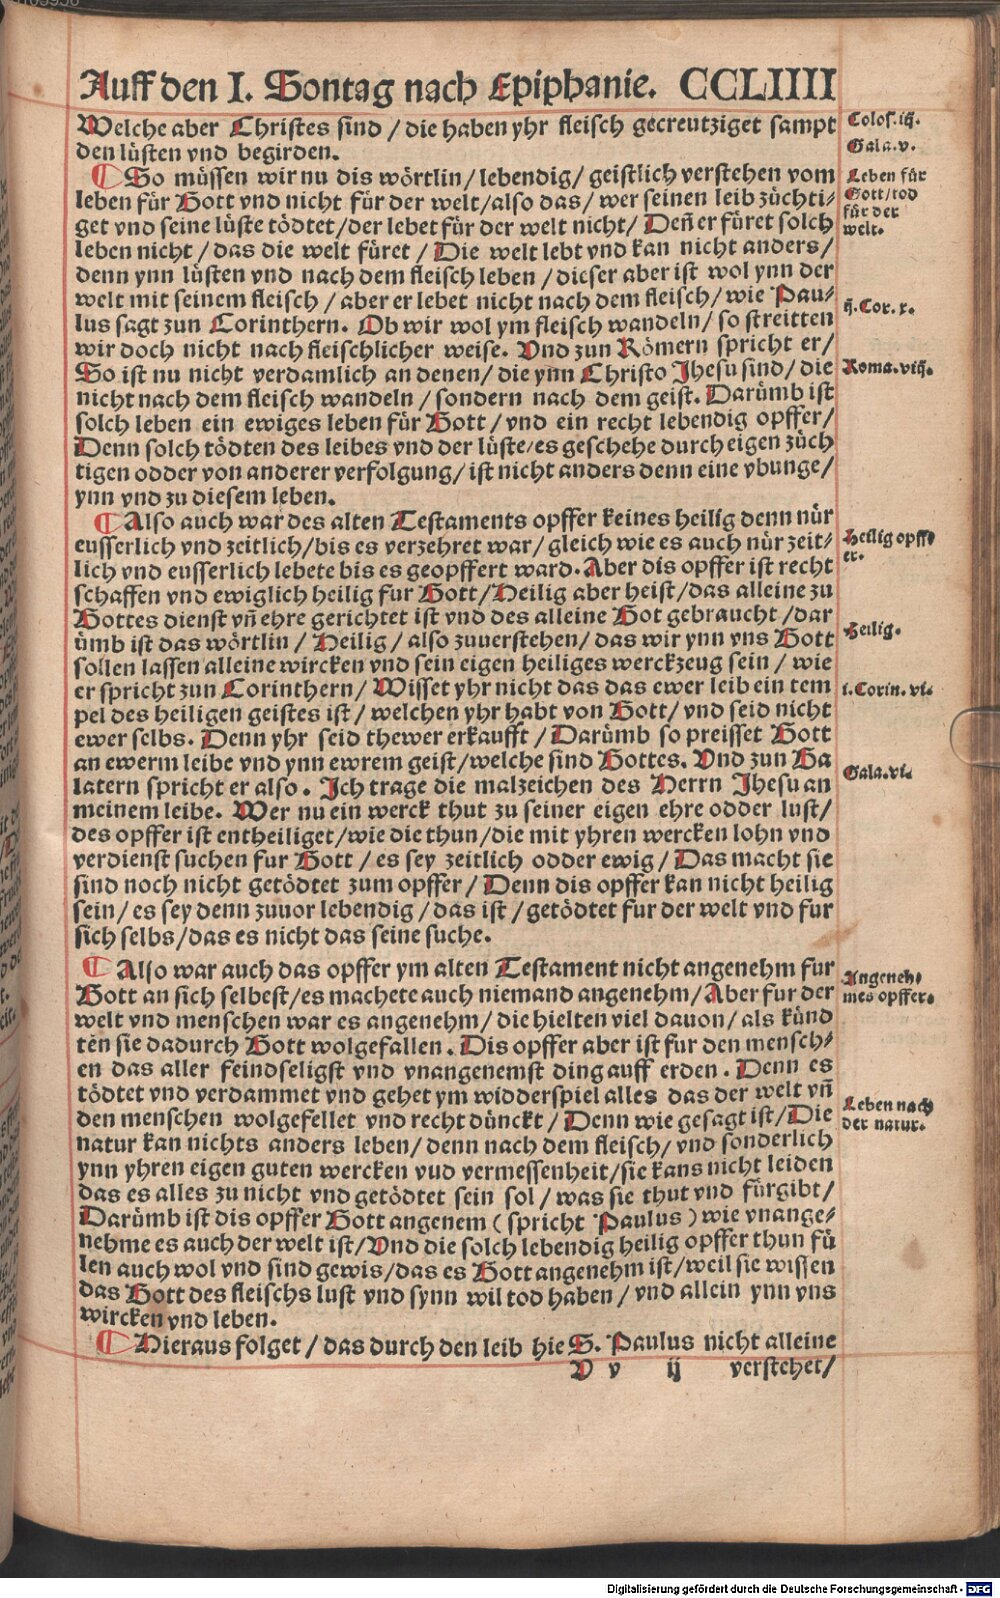 Auff den I. Sontag nach Epiphanie. CCLIIII
Welche aber Christes sind / die haben yhr fleisch gecreutziget sampt
den lüsten vnd begirden.
Colos. iij.
Gala. v.
¶ So müssen wir nu dis wörtlin / lebendig / geistlich verstehen vom
leben für Gott vnd nicht für der welt / also das / wer seinen leib züchti⸗
get vnd seine lüste tödtet / der lebet für der welt nicht / Deñ er füret solch
leben nicht / das die welt füret / Die welt lebt vnd kan nicht anders /
denn ynn lüsten vnd nach dem fleisch leben / dieser aber ist wol ynn der
welt mit seinem fleisch / aber er lebet nicht nach dem fleisch / wie Pau⸗
lus sagt zun Corinthern. Ob wir wol ym fleisch wandeln / so streitten
wir doch nicht nach fleischlicher weise. Vnd zun Römern spricht er /
So ist nu nicht verdamlich an denen / die ynn Christo Jhesu sind / die
nicht nach dem fleisch wandeln / sondern nach dem geist. Darümb ist
solch leben ein ewiges leben für Gott / vnd ein recht lebendig opffer /
Denn solch tödten des leibes vnd der lüste / es geschehe durch eigen züch
tigen odder von anderer verfolgung / ist nicht anders denn eine vbunge /
ynn vnd zu diesem leben.
Leben für
Gott / tod
für der
welt.
ij. Cor. x.
Roma. viij.
¶ Also auch war des alten Testaments opffer keines heilig denn nür
eusserlich vnd zeitlich / bis es verzehret war / gleich wie es auch nür zeit⸗
lich vnd eusserlich lebete bis es geopffert ward. Aber dis opffer ist recht
schaffen vnd ewiglich heilig fur Gott / Heilig aber heist / das alleine zu
Gottes dienst vñ ehre gerichtet ist vnd des alleine Got gebraucht / dar
ümb ist das wörtlin / Heilig / also zuuerstehen / das wir ynn vns Gott
sollen lassen alleine wircken vnd sein eigen heiliges werckzeug sein / wie
er spricht zun Corinthern / Wisset yhr nicht das das ewer leib ein tem
pel des heiligen geistes ist / welchen yhr habt von Gott / vnd seid nicht
ewer selbs. Denn yhr seid thewer erkaufft / Darümb so preisset Gott
an ewerm leibe vnd ynn ewrem geist / welche sind Gottes. Vnd zun Ga
latern spricht er also. Ich trage die malzeichen des Herrn Jhesu an
meinem leibe. Wer nu ein werck thut zu seiner eigen ehre odder lust /
des opffer ist entheiliget / wie die thun / die mit yhren wercken lohn vnd
verdienst suchen fur Gott / es sey zeitlich odder ewig / Das macht sie
sind noch nicht getödtet zum opffer / Denn dis opffer kan nicht heilig
sein / es sey denn zuuor lebendig / das ist / getödtet fur der welt vnd fur
sich selbs / das es nicht das seine suche.
Heilig opff⸗
er.
Heilig.
i. Corin. vi.
Gala. vi.
¶ Also war auch das opffer ym alten Testament nicht angenehm fur
Gott an sich selbest / es machete auch niemand angenehm / Aber fur der
welt vnd menschen war es angenehm / die hielten viel dauon / als künd
ten sie dadurch Gott wolgefallen. Dis opffer aber ist fur den mensch⸗
en das aller feindseligst vnd vnangenemst ding auff erden. Denn es
tödtet vnd verdammet vnd gehet ym widderspiel alles das der welt vñ
den menschen wolgefellet vnd recht dünckt / Denn wie gesagt ist / Die
natur kan nichts anders leben / denn nach dem fleisch / vnd sonderlich
ynn yhren eigen guten wercken vud vermessenheit / sie kans nicht leiden
das es alles zu nicht vnd getödtet sein sol / was sie thut vnd fürgibt /
Darümb ist dis opffer Gott angenem ( spricht Paulus ) wie vnange⸗
nehme es auch der welt ist / Vnd die solch lebendig heilig opffer thun fü
len auch wol vnd sind gewis / das es Gott angenehm ist / weil sie wissen
das Gott des fleischs lust vnd synn wil tod haben / vnd allein ynn vns
wircken vnd leben.
Angeneh⸗
mes opffer.
Leben nach
der natur.
¶ Hieraus folget / das durch den leib hie S. Paulus nicht alleine
V v ij verstehet /
Digitalisierung gefördert durch die Deutsche Forschungsgemeinschaft - DFG